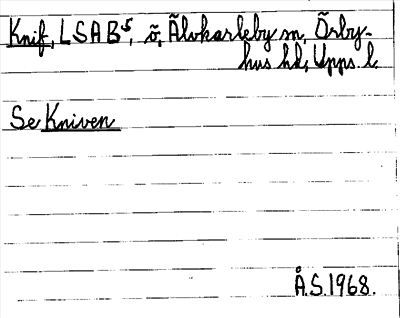 Knif, LSAB⁵, õ, Älvkarleby sn, Örby-
hus hd, Upps. l.
Se Kniven
Å.S. 1968.